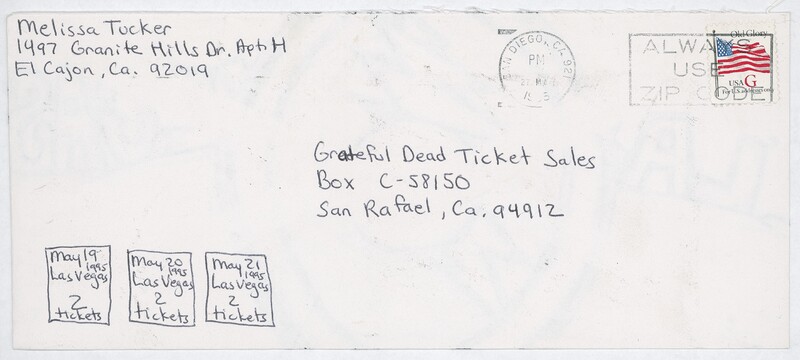 Melissa Tucker
1497 Granite Hills Dr. Apt H
El Cajon, Ca. 92019
SAN DIEGO, CA 921
PM
1995
ALWAYS
USE
ZIP CODE
Old Glory
USA G
For U.S. addresses only
Grateful Dead Ticket Sales
Box C-58150
San Rafael, Ca. 94912
May 19
1995
Las Vegas
2
tickets
May 20
1995
Las Vegas
2
tickets
May 21
1995
Las Vegas
2
tickets